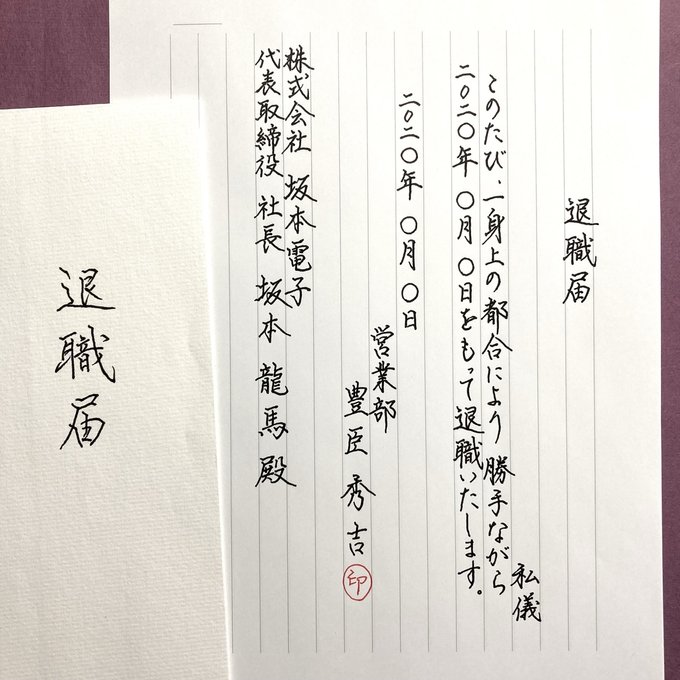 退職届
私儀
このたび、一身上の都合により 勝手ながら
二〇二〇年 〇月 〇日をもって退職いたします。
二〇二〇年 〇月 〇日
営業部
豊臣 秀吉 印
株式会社 坂本電子
代表取締役 社長 坂本 龍馬 殿
退職届